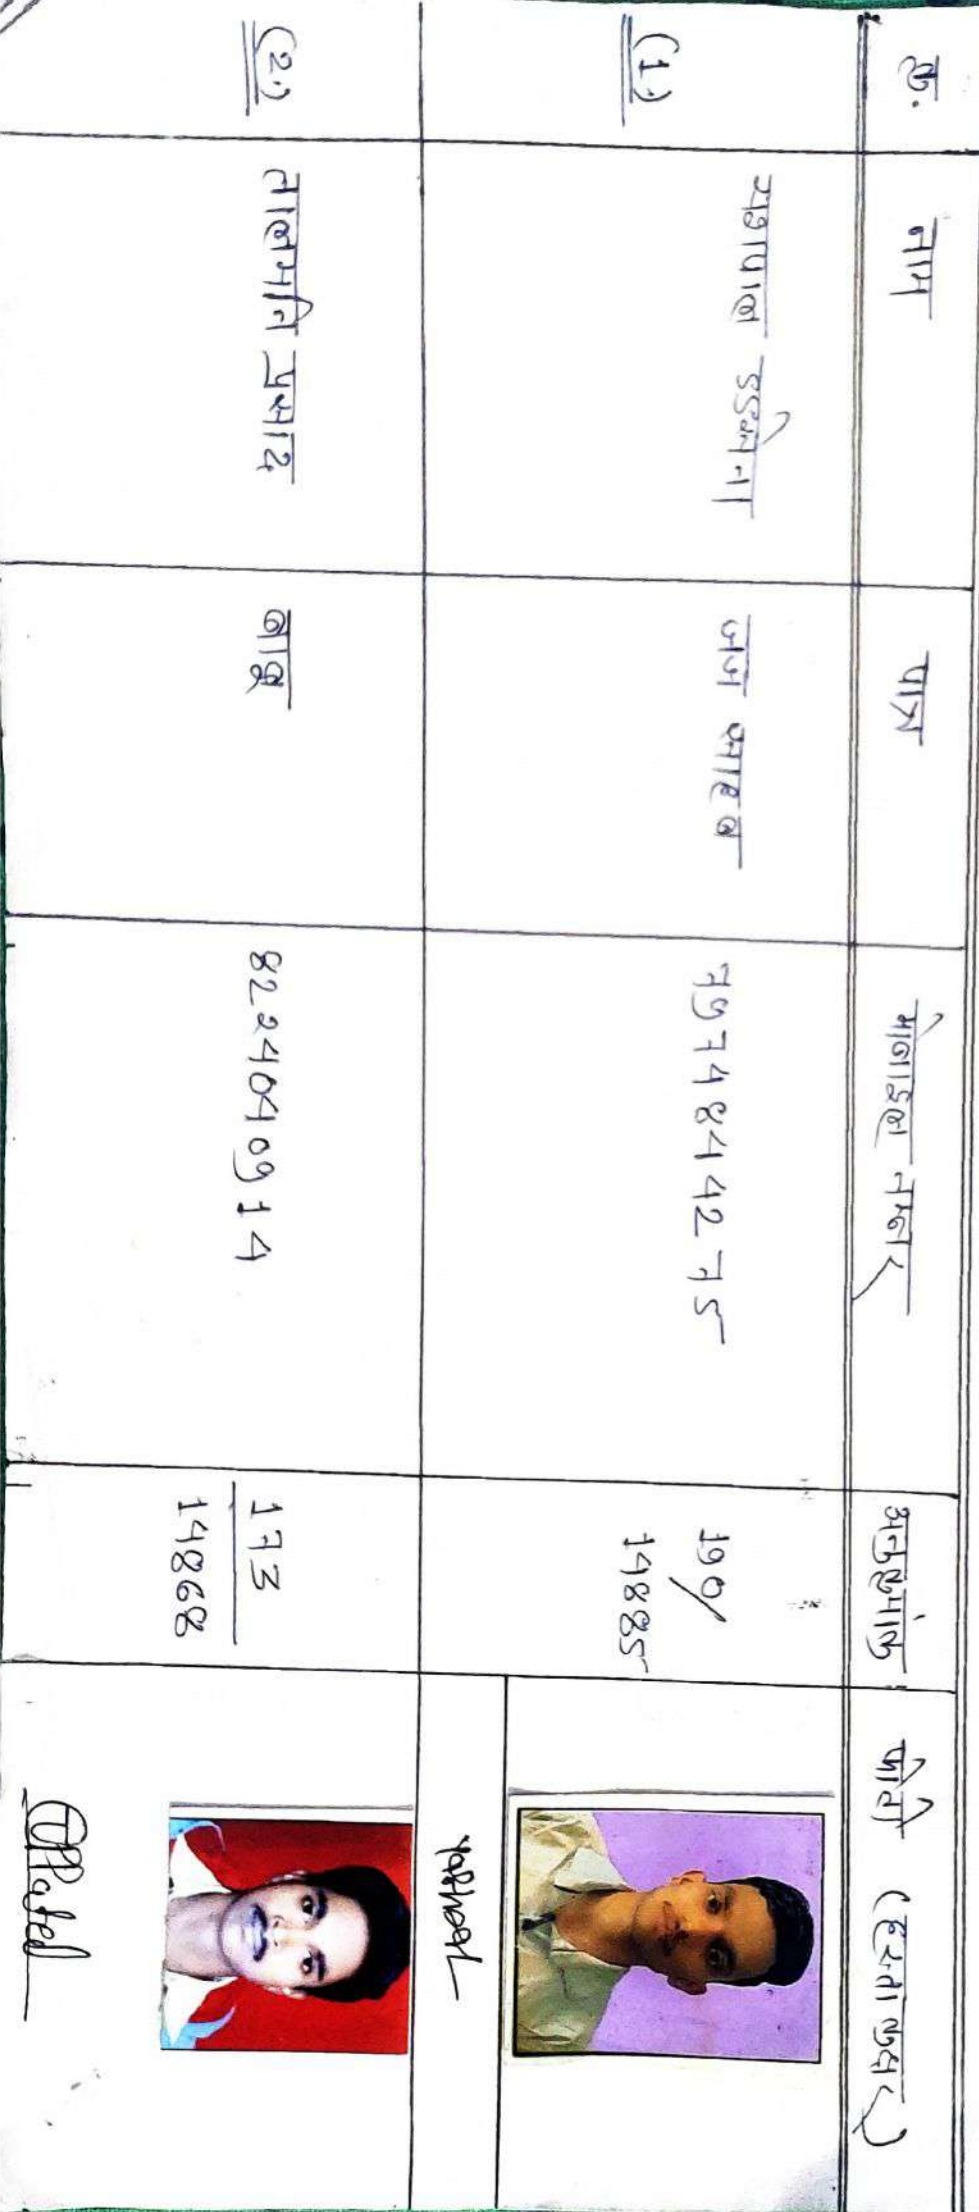 क्र. नाम पात्र मोबाइल नम्बर अनुक्रमांक फोटो (हस्ताक्षर)
(1.) यशपाल डड़सेना जज साहब 7974844275 190/
14885
Yashpal
(2.) लालमनि प्रसाद बाबू 8224040914 173
14868